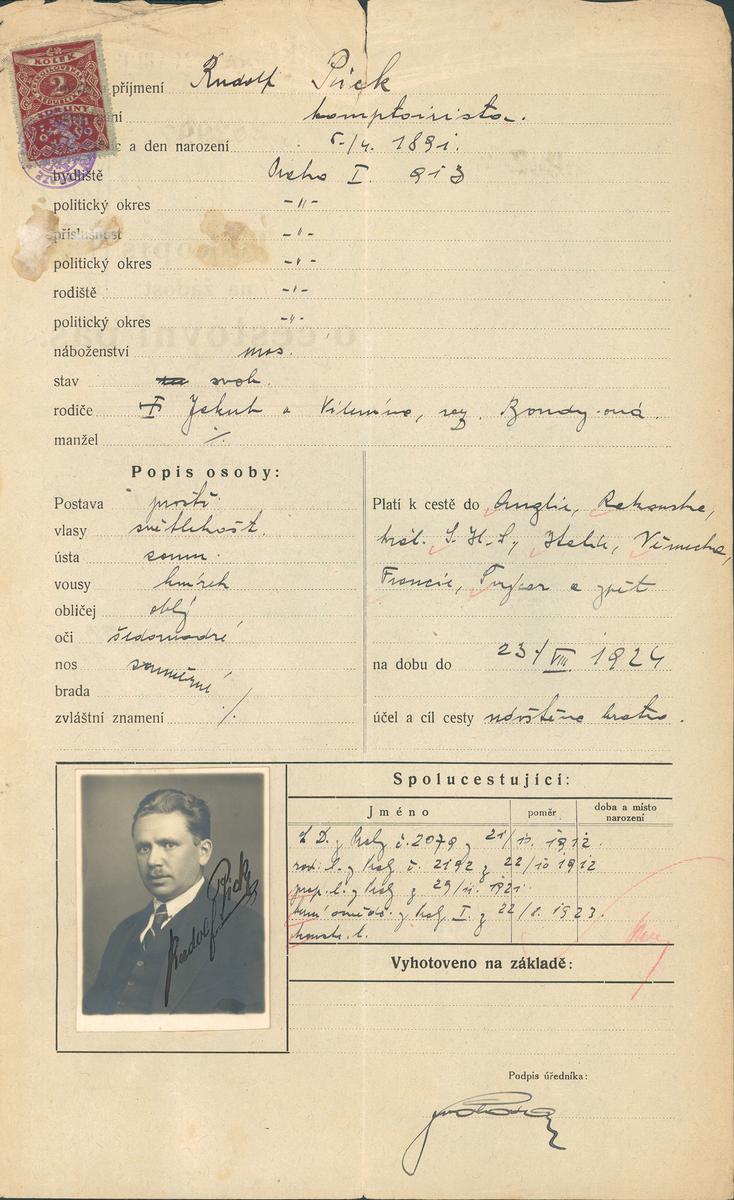 KOLEK
2
KORUNY
příjmení Rudolf Pick
komptoirista.
a den narození 5./4. 1891.
bydliště Praha I. 913
politický okres -"-
příslušnost -"-
politický okres -"-
rodiště -"-
politický okres -"-
náboženství mos.
stav svob.
rodiče Jakub a Vilemína, roz. Bondy-ová.
manžel ./.
Popis osoby:
Postava prostř.
vlasy světlekašt.
ústa soum.
vousy knírek
obličej oblý
oči šedomodré
nos souměrný
brada
zvláštní znamení ./.
Platí k cestě do Anglie, Rakouska,
král. S.H.S., Italie, Německa,
Francie, Švýcar a zpět
na dobu do 23./VIII. 1924
účel a cíl cesty návštěva bratra.
Spolucestující:
Jméno poměr doba a místo narození
č. 2079 z 21/10. 1912.
č. 2192 z 22/10 1912
z 29/11. 1921.
I. z 22/8. 1923.
Rudolf Pick
Vyhotoveno na základě:
Podpis úředníka: